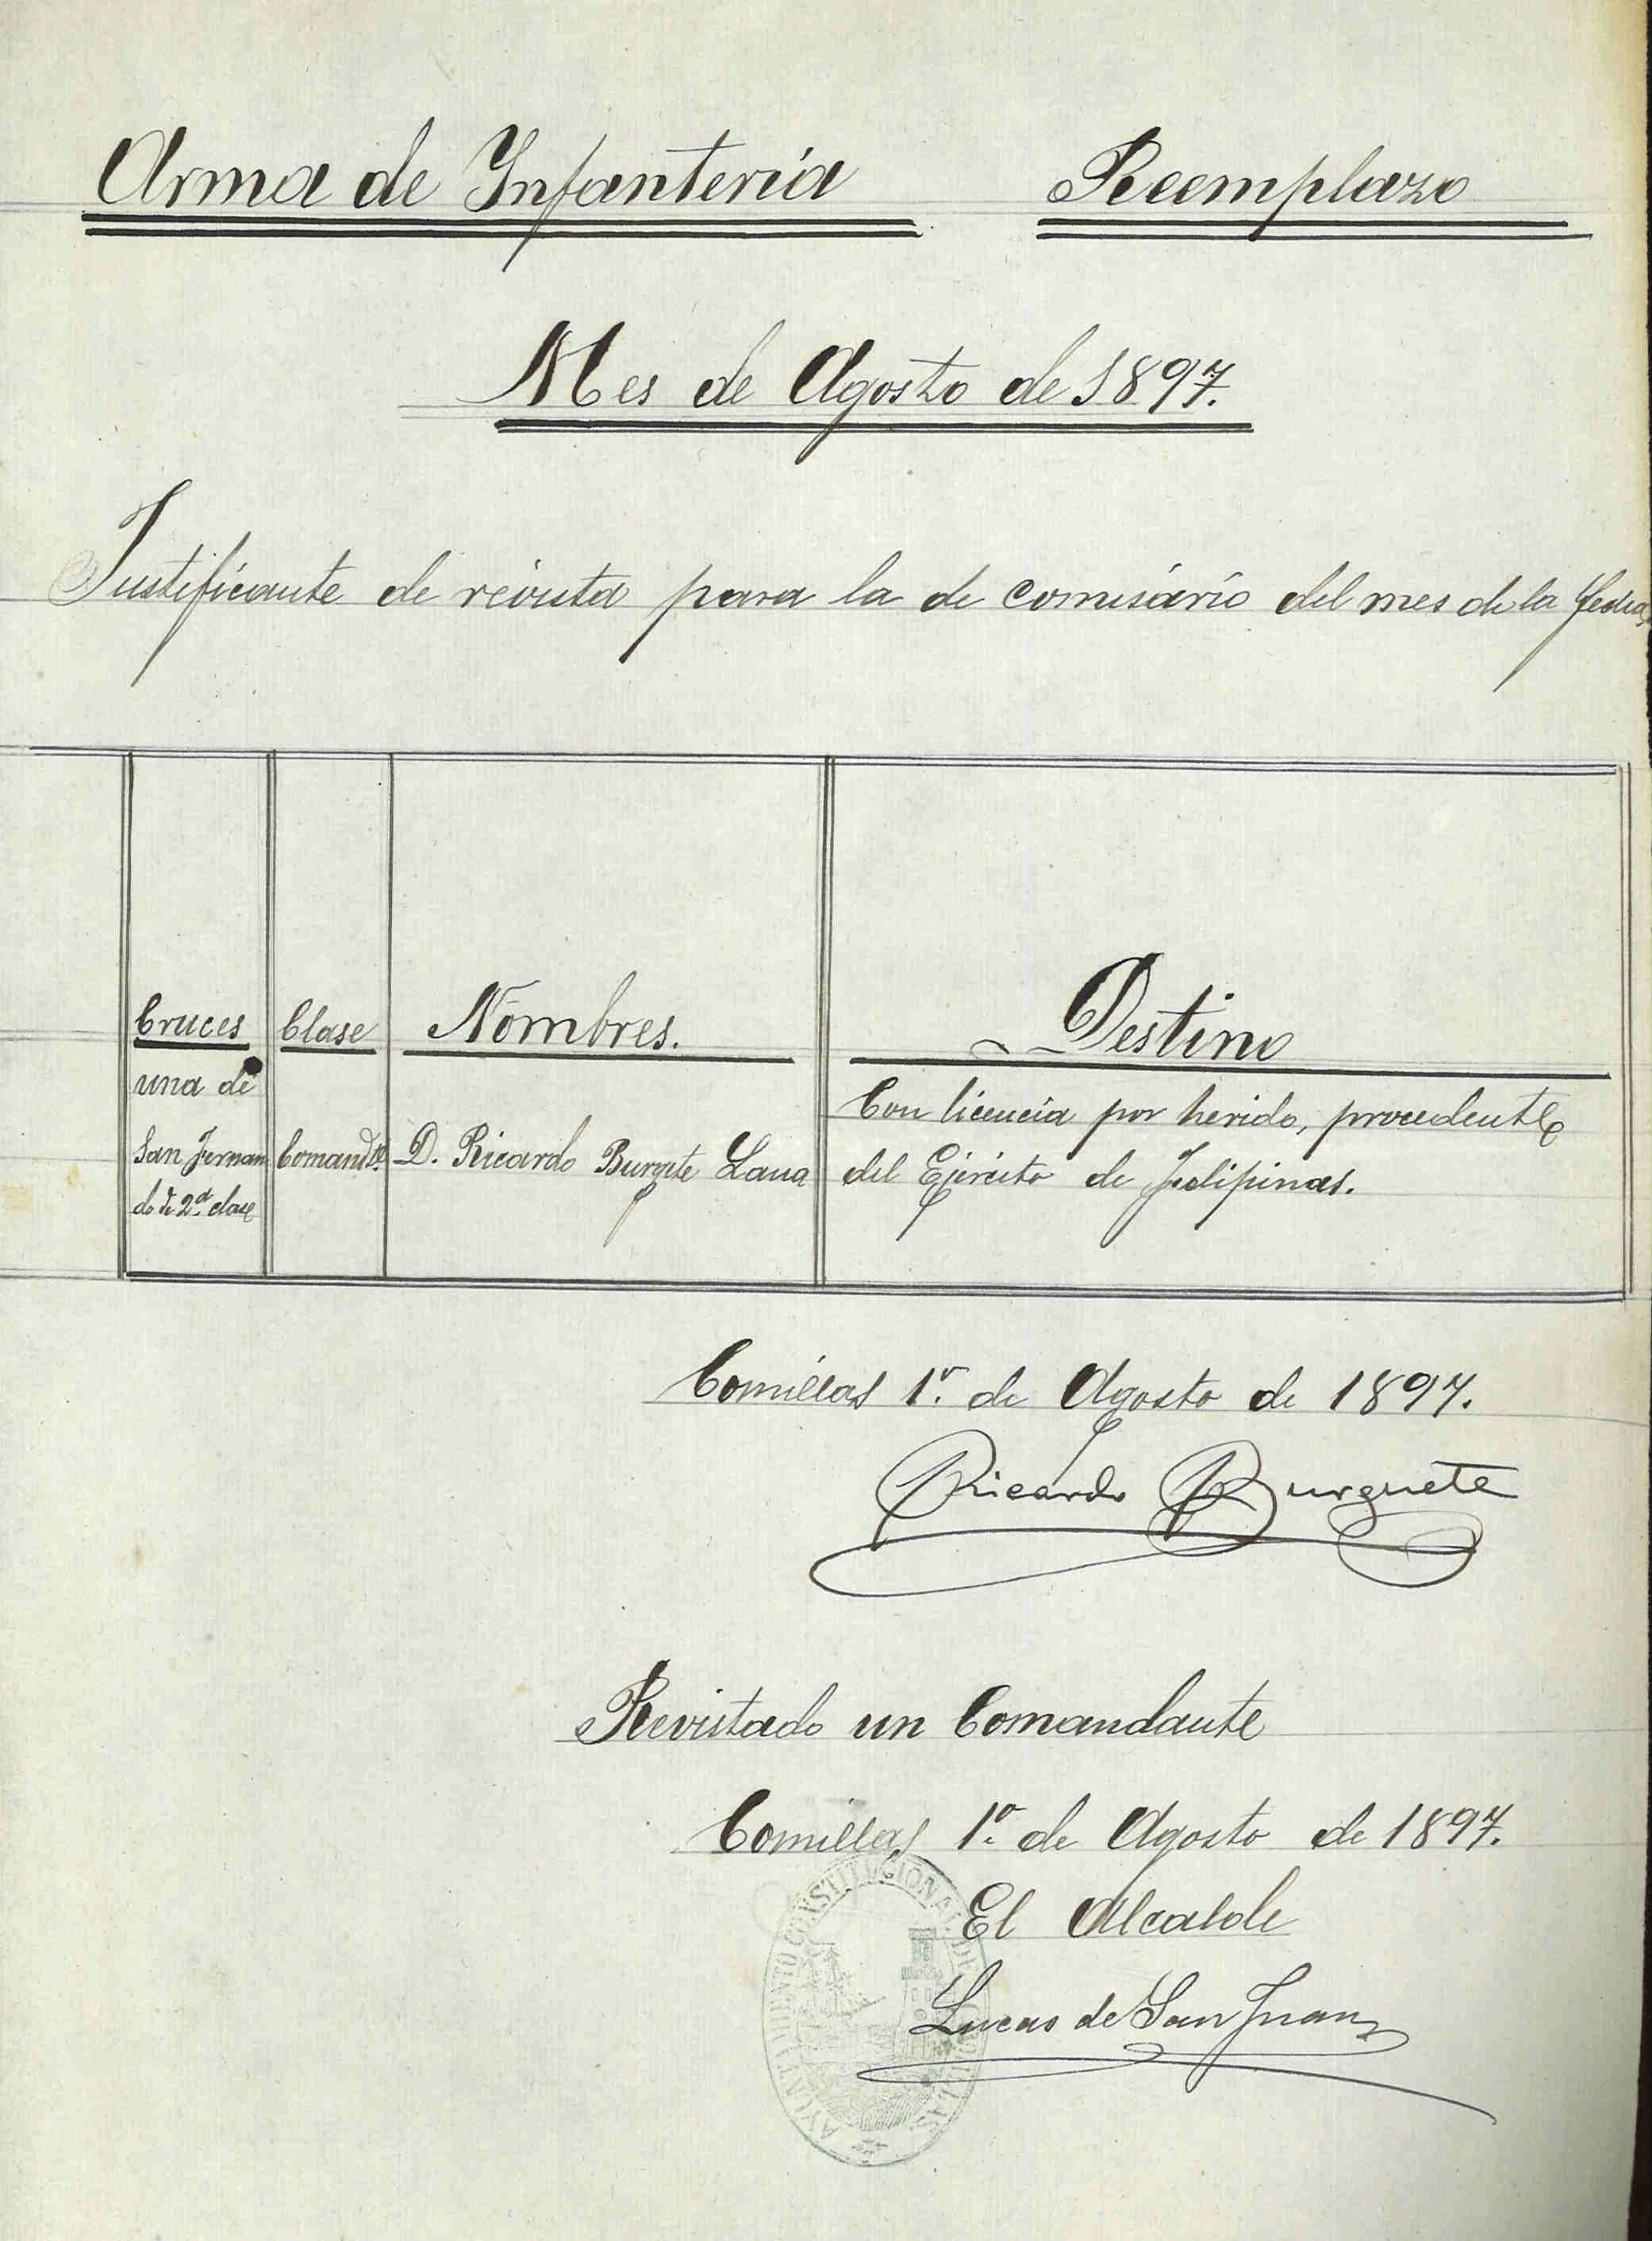 Arma de Infantería Reemplazo
Mes de Agosto de 1897.
Justificante de revista para la de comisario del mes de la fecha
Cruces Clase Nombres. Destino
una de
San Fernan
do de 2ª clase
Comandte
D. Ricardo Burgete Lana
Con licencia por herido, procedente
del Ejército de Felipinas.
Comillas 1º. de Agosto de 1897.
Ricardo Burguete
Revistado un Comandante
Comillas 1º. de Agosto de 1897.
El Alcalde
Lucas de San Juan
AYUNTAMIENTO CONSTITUCIONAL DE COMILLAS